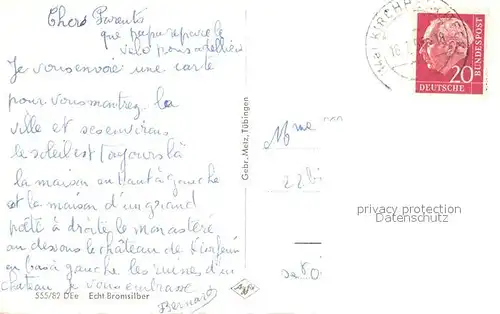 Chers Parents
que papa repare le
velo pour
Je vous envoie une carte
pour vous montrez la
ville et ses environs
le soleil est toujours là
la maison en haut à gauche
est la maison d'un grand
poète à droite le monastére
au dessous le château de
en bas à gauche les ruines d'un
château je vous embrasse
Bernard
555/82 DEe Echt Bromsilber
Gebr. Metz, Tübingen
KIRCHH
20
DEUTSCHE
BUNDESPOST
Mme
22 bi
privacy protection
Datenschutz